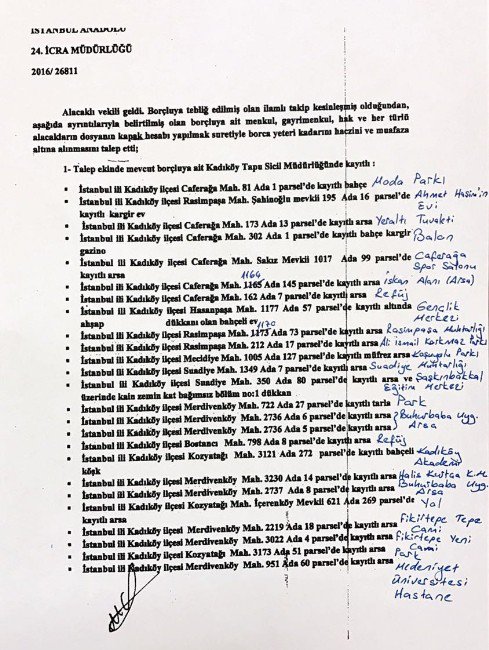 İSTANBUL ANADOLU
24. İCRA MÜDÜRLÜĞÜ
2016/ 26811
Alacaklı vekili geldi. Borçluya tebliğ edilmiş olan ilamlı takip kesinleşmiş olduğundan,
aşağıda ayrıntılarıyla belirtilmiş olan borçluya ait menkul, gayrimenkul, hak ve her türlü
alacakların dosyanın kapak hesabı yapılmak suretiyle borca yeteri kadarını haczini ve muafaza
altına alınmasını talep etti;
1- Talep ekinde mevcut borçluya ait Kadıköy Tapu Sicil Müdürlüğünde kayıtlı :
▪ İstanbul ili Kadıköy ilçesi Caferağa Mah. 81 Ada 1 parsel'de kayıtlı bahçe Moda Parkı
▪ İstanbul ili Kadıköy ilçesi Rasimpaşa Mah. Şahinoğlu mevkii 195 Ada 16 parsel'de Ahmet Haşim'in
kayıtlı kargir ev Evi
▪ İstanbul ili Kadıköy ilçesi Caferağa Mah. 173 Ada 13 parsel'de kayıtlı arsa Yeraltı Tuvaleti
▪ İstanbul ili Kadıköy ilçesi Caferağa Mah. 302 Ada 1 parsel'de kayıtlı bahçe kargir Balon
gazino
▪ İstanbul ili Kadıköy ilçesi Caferağa Mah. Sakız Mevkii 1017 Ada 99 parsel'de Caferağa
kayıtlı arsa 1164 Spor Salonu
▪ İstanbul ili Kadıköy ilçesi Caferağa Mah. 1265 Ada 145 parsel'de kayıtlı arsa İskan Alanı (Arsa)
▪ İstanbul ili Kadıköy ilçesi Caferağa Mah. 162 Ada 7 parsel'de kayıtlı arsa Refüj
▪ İstanbul ili Kadıköy ilçesi Hasanpaşa Mah. 1177 Ada 57 parsel'de kayıtlı altında Gençlik
ahşap dükkanı olan bahçeli ev 1170 Merkezi
▪ İstanbul ili Kadıköy ilçesi Rasimpaşa Mah. 1173 Ada 73 parsel'de kayıtlı arsa Rasimpaşa Muhtarlığı
▪ İstanbul ili Kadıköy ilçesi Rasimpaşa Mah. 212 Ada 17 parsel'de kayıtlı arsa Ali ismail Korkmaz Parkı
▪ İstanbul ili Kadıköy ilçesi Mecidiye Mah. 1005 Ada 127 parsel'de kayıtlı müfrez arsa Koşuyolu Parkı
▪ İstanbul ili Kadıköy ilçesi Suadiye Mah. 1349 Ada 7 parsel'de kayıtlı arsa Suadiye Muhtarlığı
▪ İstanbul ili Kadıköy ilçesi Suadiye Mah. 350 Ada 80 parsel'de kayıtlı arsa ve Şaşkınbakkal
üzerinde kain zemin kat bağımsız bölüm no:1 dükkan Eğitim Merkezi
▪ İstanbul ili Kadıköy ilçesi Merdivenköy Mah. 722 Ada 27 parsel'de kayıtlı tarla Park
▪ İstanbul ili Kadıköy ilçesi Merdivenköy Mah. 2736 Ada 6 parsel'de kayıtlı arsa Buhurbaba Uyg.
▪ İstanbul ili Kadıköy ilçesi Merdivenköy Mah. 2736 Ada 5 parsel'de kayıtlı arsa Arsa
▪ İstanbul ili Kadıköy ilçesi Bostancı Mah. 798 Ada 8 parsel'de kayıtlı arsa Refüj
▪ İstanbul ili Kadıköy ilçesi Kozyatağı Mah. 3121 Ada 272 parsel'de kayıtlı bahçeli Kadıköy
köşk Akademi
▪ İstanbul ili Kadıköy ilçesi Merdivenköy Mah. 3230 Ada 14 parsel'de kayıtlı arsa Halis Kurtça K.M.
▪ İstanbul ili Kadıköy ilçesi Merdivenköy Mah. 2737 Ada 8 parsel'de kayıtlı arsa Buhurbaba Uyg. Arsa
▪ İstanbul ili Kadıköy ilçesi Kozyatağı Mah. İçerenköy Mevkii 621 Ada 269 parsel'de Yol
kayıtlı arsa
▪ İstanbul ili Kadıköy ilçesi Merdivenköy Mah. 2219 Ada 18 parsel'de kayıtlı arsa Fikirtepe Tepe Cami
▪ İstanbul ili Kadıköy ilçesi Merdivenköy Mah. 3022 Ada 4 parsel'de kayıtlı arsa Fikirtepe Yeni Cami
▪ İstanbul ili Kadıköy ilçesi Kozyatağı Mah. 3173 Ada 51 parsel'de kayıtlı arsa Park
▪ İstanbul ili Kadıköy ilçesi Merdivenköy Mah. 951 Ada 60 parsel'de kayıtlı arsa Medeniyet
üniversitesi
Hastane